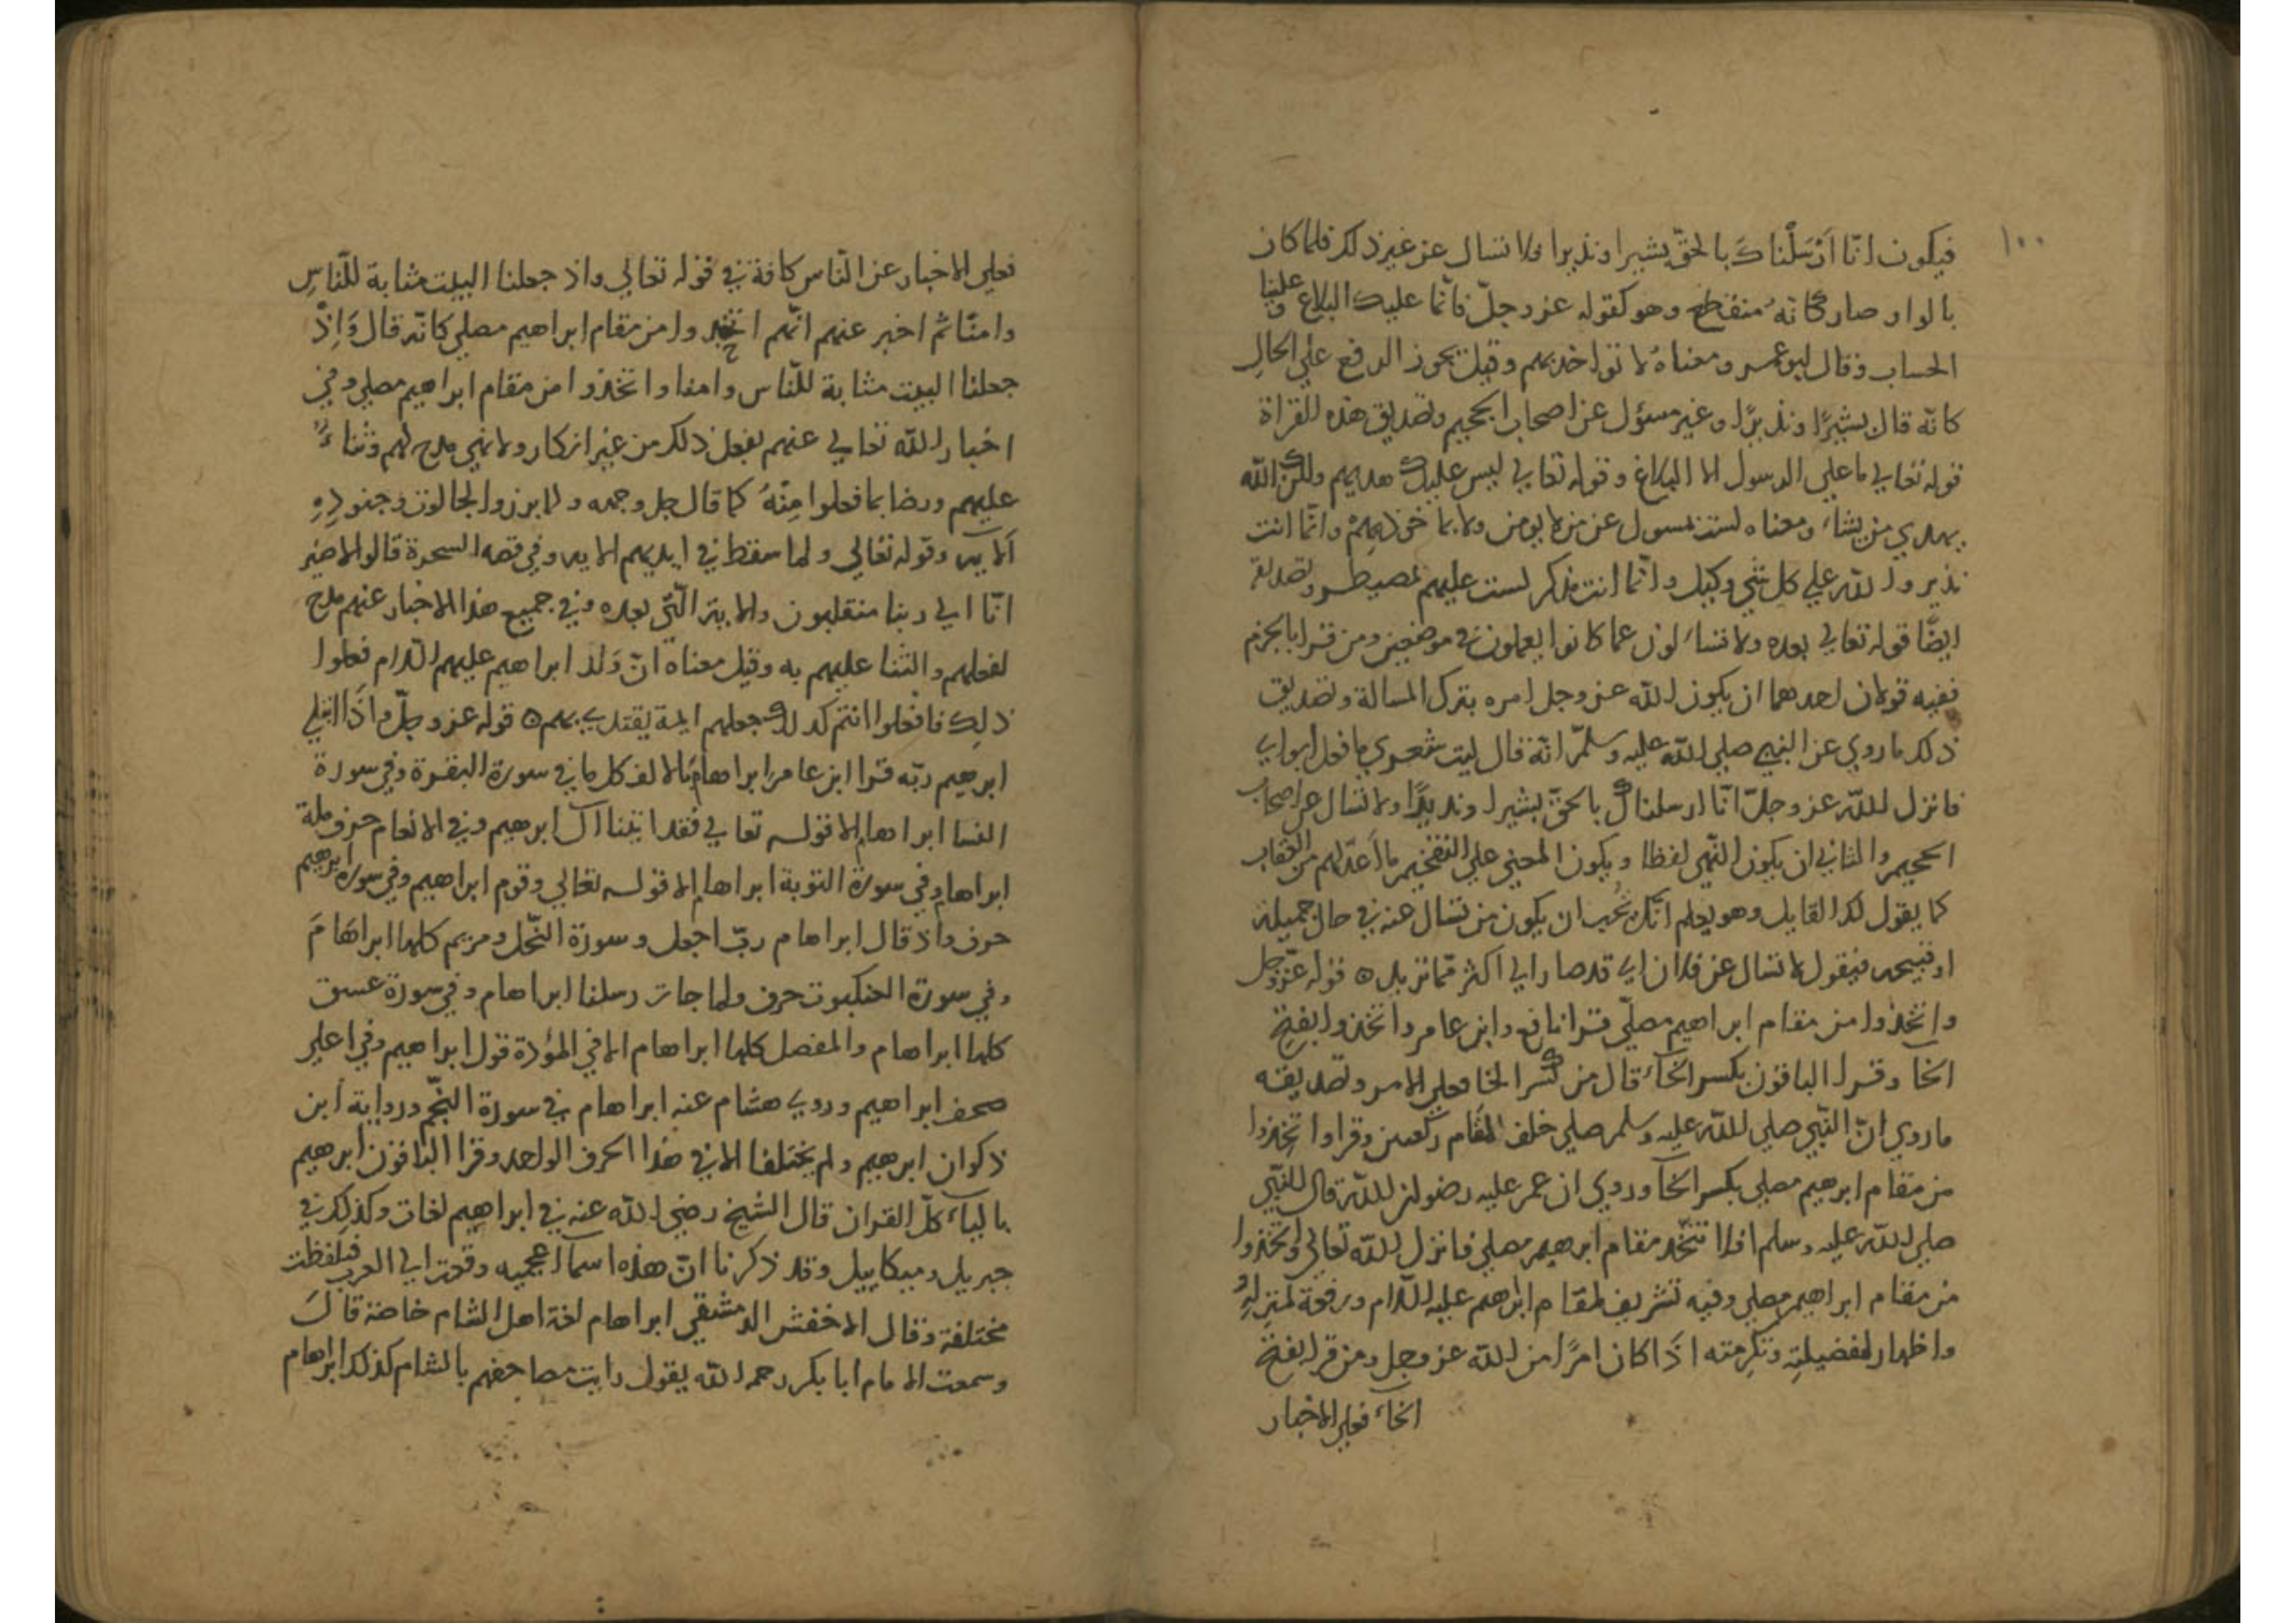 ١٠٠
فيكون انّا اَرْسَلْناكَ بالحقّ بشيرا ونذيرا فلا تسال عن غير ذلك فلما كان
بالواو صار كانهُ منقطع وهو كقوله عز وجلّ فانّما عليك البلاغ وعلينا
الحساب وقال ابو عمر ومعناهُ لا تواخذ بهم وقيل يجوز الرفع علي الحالِ
كانّه قال بشيرًا ونذيرًا وغير مسؤل عن اصحاب الجحيم وتصديق هذه القراة
قوله تعالي ما علي الرسول الا البلاغ وقوله تعالي ليس عليك هديهم ولكن الله
يهدي من يشاء ومعناه لست بمسول عن من لا يومن ولا بما خوذ بهم وانّما انت
نذير والله علي كل شي وكيل وانّما انت مذكر لست عليهم بمصيطر وتصديقه
ايضًا قوله تعالي بعده ولا تساءلون عما كانوا يعملون في موضعين ومن قرا بالجزم
ففيه قولان احدهما ان يكون الله عز وجل امره بترك المسالة وتصديق
ذلك ما روي عن النبي صلي الله عليه وسلمّ انّه قال ليت شعري ما فعل ابواي
فانزل الله عز وجلّ انّا ارسلناك بالحقّ بشيرا ونذيرًا ولا تسال عن اصحاب
الجحيم والثاني ان يكون النّهي لفظا ويكون المعني علي التفخيم ما اَعدّ لهم من العقاب
كما يقول لك القايل وهو يعلم انّك تُحب ان يكون من تسال عنه في حال جميلة
او قبيحه فيقول لا تسال عن فلان اي قد صار الي اكثر ممّا تريد ۞ قوله عزّ وجل
واتّخذوا من مقام ابراهيم مصلّي قرا نافع وابن عامر واتخذوا بفتح
الخا وقرا الباقون بكسر الخآء قال من كسر الخا فعلي الامر وتصديقه
ما روي انّ النّبي صلي الله عليه وسلم صلي خلف المقام ركعتين وقرا واتخِذوا
من مقام ابرهيم مصلي بكسر الخآ وروي ان عمر عليه رضوان الله قال للنّبي
صلي الله عليه وسلم افلا نتّخذ مقام ابرهيم مصلي فانزل الله تعالي واتّخذوا
من مقام ابراهيم مصلي وفيه تشريف لمقام ابراهم عليه السّلام ورفعة لمنزلته
واظهار لفضيلتِه وتكرمته اذَا كان امرًا من الله عز وجل ومن قرا بفتح
الخآء فعلي الاخبار
فعلي الاخبار عن النّاس كافة في قوله تعالي واذ جعلنا البيت مثابة للنّاسِ
وامنًا ثم اخبر عنهم انّهم اتخذوا من مقام ابراهيم مصلي كانّه قال وَاِذْ
جعلنا البيت مثابة للنّاس وامنا واتخذوا من مقام ابراهيم مصلي وفي
اخبار الله تعالي عنهم بفعل ذلك من غير انكار ولا نهي مدح لهم وثناءً
عليهم ورضا بما فعلوا مِنْهُ كما قال جل وجهه ولما برزوا لجالوت وجنودِهِ
اَلآيه وقوله تعالي ولما سقط في ايديهم الايه وفي قصه السحرة قالوا لا ضير
انّا الي ربنا منقلبون والايتر الّتي بعده وفي جميع هذا الاخبار عنهم مدح
لفعلهم والثنا عليهم به وقيل معناه انّ وَلد ابراهيم عليهم السّلام فعلوا
ذلِك فافعلوا انتم كذلك جعلهم ايمة يقتدي بهم ۞ قوله عز وجلّ واذا ابتلي
ابرهيم ربّه قرا ابن عامر ابراهام بالالف كل ما في سورة البقرة وفي سورة
النسا ابراهام الا قوله تعالي فقد اتينا آل ابرهيم وفي الانعام حرف ملة
ابراهام وفي سورة التوبة ابراهام الا قوله تعالي وقوم ابراهيم وفي سورة ابرهيم
حرف واذ قال ابراهام ربّ اجعل وسورة النّحل ومريم كلها ابراهَامَ
وفي سورة العنكبوت حرف ولما جات رسلنا ابراهام وفي سورة عسق
كلها ابراهام والمفصل كلها ابراهام الا في المؤدة قول ابراهيم وفي اعلي
صحف ابراهيم وروي هشام عنه ابراهام في سورة النّجم ورواية ابن
ذكوان ابرهيم ولم يختلفا الا في هذا الحرف الواحد وقرا الباقون ابرهيم
بالياء كلّ القران قال الشيخ رضي الله عنه في ابراهيم لغات وكذلك في
جبريل وميكاييل وقد ذكرنا انّ هذه اسمآ اعجميه وقعت الي العرب فلفظت
مختلفة وقال الاخفش الدمشقي ابراهام لغة اهل الشام خاصة قالَ
وسمعت الامام ابا بكر رحمه الله يقول رايت مصاحفهم بالشام كذلك ابراهام